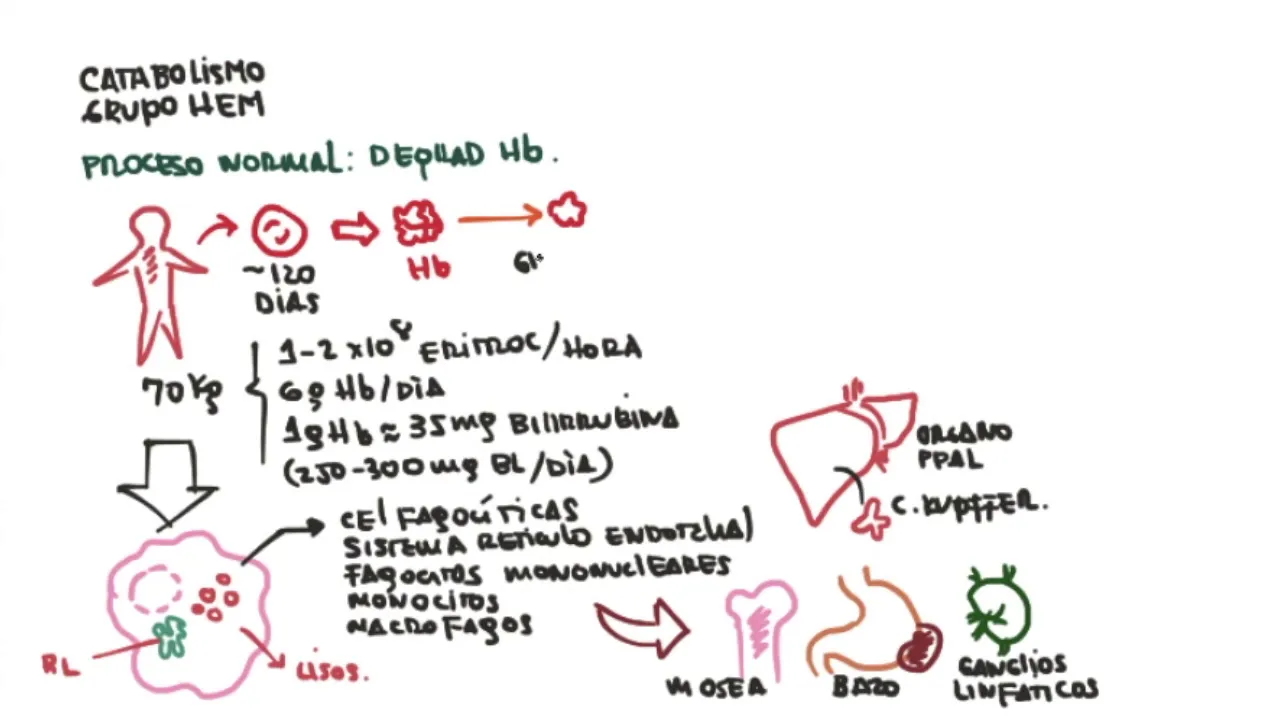 CATABOLISMO
GRUPO HEM
PROCESO NORMAL: DEGRAD Hb.
~120
DIAS
Hb
70 Kg
1-2 x10⁸ ERITROC/HORA
6g Hb/DIA
1g Hb ≈ 35mg BILIRRUBINA
(250-300 mg BL/DIA)
CEL FAGOCÍTICAS
SISTEMA RETICULO ENDOTELIAL
FAGOCITOS MONONUCLEARES
MONOCITOS
MACROFAGOS
RL
LISOS.
ORGANO
PPAL
C. KUPFFER.
M OSEA
BAZO
GANGLIOS
LINFATICOS